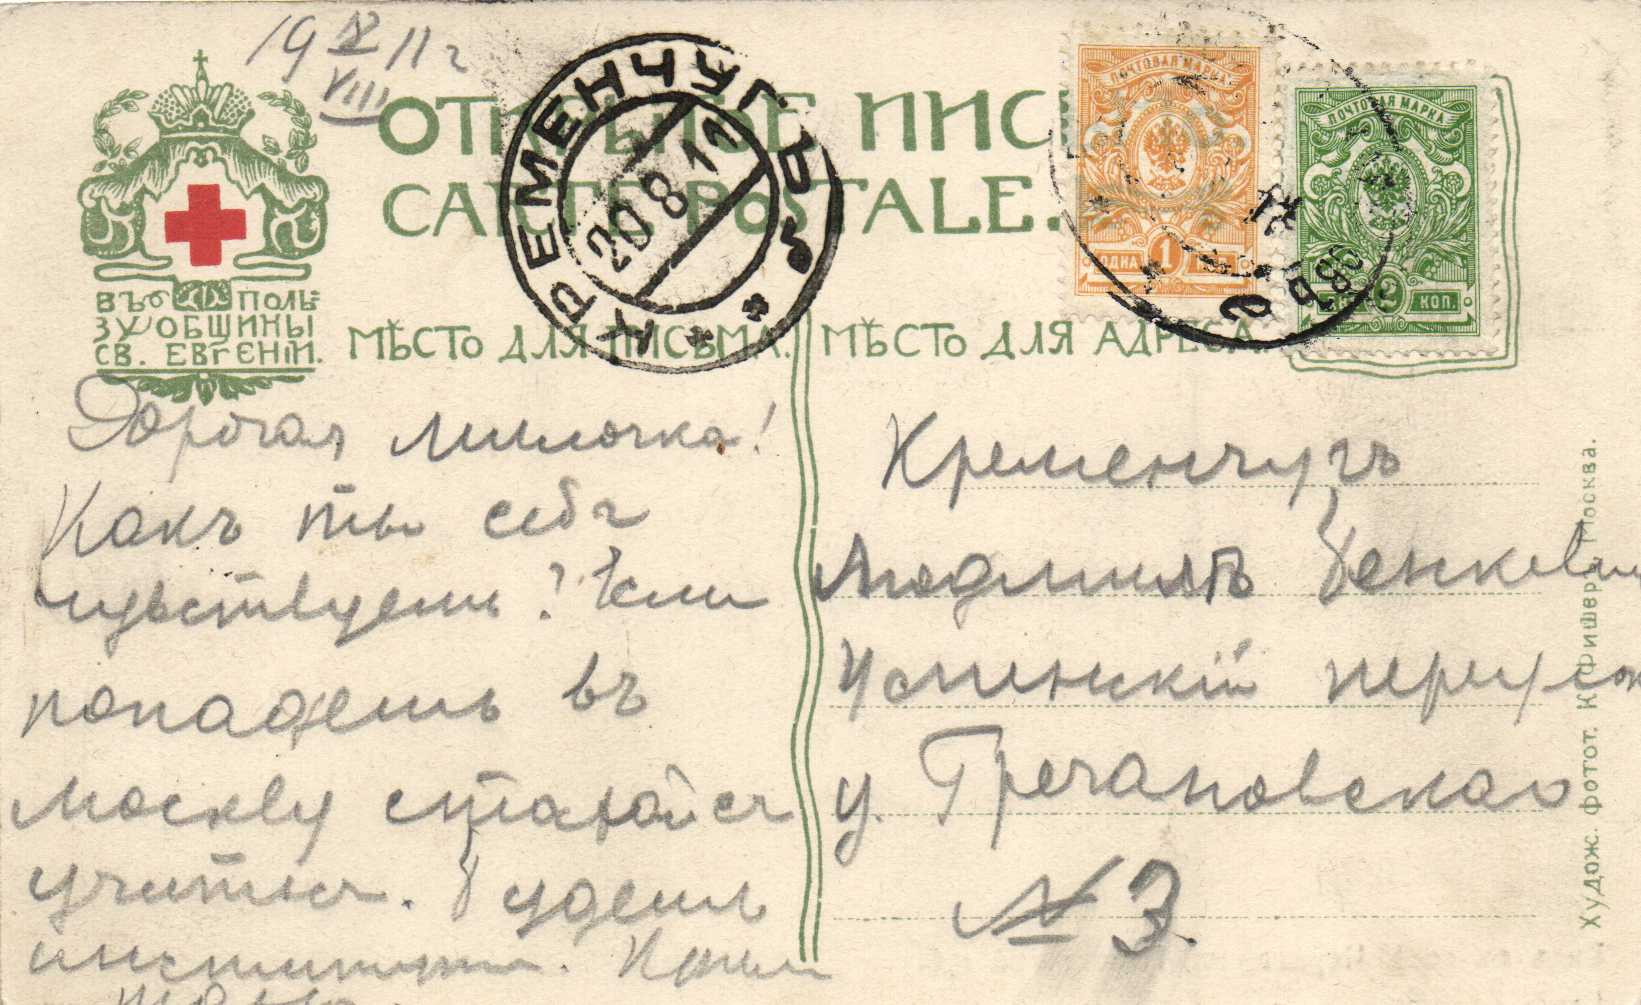 19 IX 11 г
VIII
ОТКРЫТОЕ ПИС
CARTE POSTALE.
ВЪ ПОЛЬ
ЗУ ОБЩИНЫ
СВ. ЕВГЕНІИ.
МѢСТО ДЛЯ ПИСЬМА.
МѢСТО ДЛЯ АДРЕСА.
КРЕМЕНЧУГЪ
20 8 11
ПОЧТОВАЯ МАРКА
ОДНА 1 КОП.
ПОЧТОВАЯ МАРКА
2 КОП.
Дорогая Милочка!
Какъ ты себя
чувствуешь? Если
попадешь въ
Москву старайся
учиться. Будешь
институтка.
Кременчугъ
Людмилѣ
Успенскій переулок
у Гречановскаго
№ 3.
Худож. фотот. К. Фишеръ, Москва.